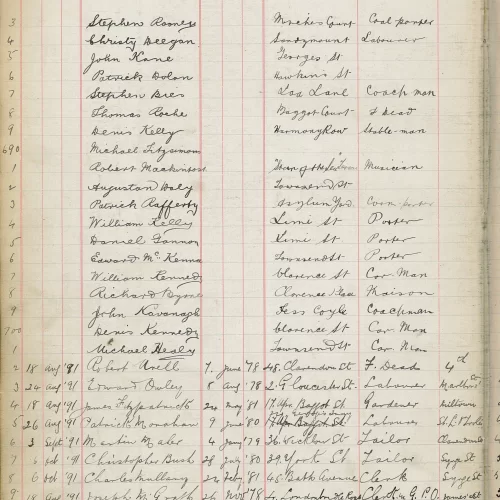 3 Stephen Rooney Mackies Court Coal porter
4 Christy Deegan Sandymount Labourer
5 John Kane Georges St
6 Patrick Dolan Hawkins St
7 Stephen Lad Lane Coach man
8 Thomas Roche Baggot Court F Dead
9 Denis Kelly Harmony Row Stable-man
690 Michael Fitzsimons
1 Robert Mackintosh Musician
2 Augustan Daly Townsend St
3 Patrick Rafferty Asylum Yard porter
4 William Kelly Lime St Porter
5 Daniel Gannon Lime St Porter
6 Edward Mc Kenna Townsend St Porter
7 William Kennedy Clarence St Car Man
8 Richard Byrne Clarence Place Mason
9 John Kavanagh Hess Coyle Coachman
700 Denis Kennedy Clarence St Car Man
1 Michael Healy Townsend St Car Man
2 18 Aug '91 Robert 7. June '78 48. Clarendon St. F. Dead 4th
3 24 Aug '91 Edward 8 Aug '78 2. Gloucester St. Labourer
4 18 Aug '91 James Fitzpatrick 24 May '81 17 Baggot St Gardener Milltown
5 26 Aug '91 Patrick Monahan 9 June '80 Labourer
6 3 Sept '91 Martin 4 Jany '79 36. Wicklow St. Tailor
7 6 Oct '91 Christopher Bush 28 June '80 39. York St. Tailor
8 6 Oct '91 Charles Mullany 26 Feby '81 45. Bath Avenue Clerk
9 Aug '91 Joseph McGrath 26 Nov '78 Clerk G.P.O.